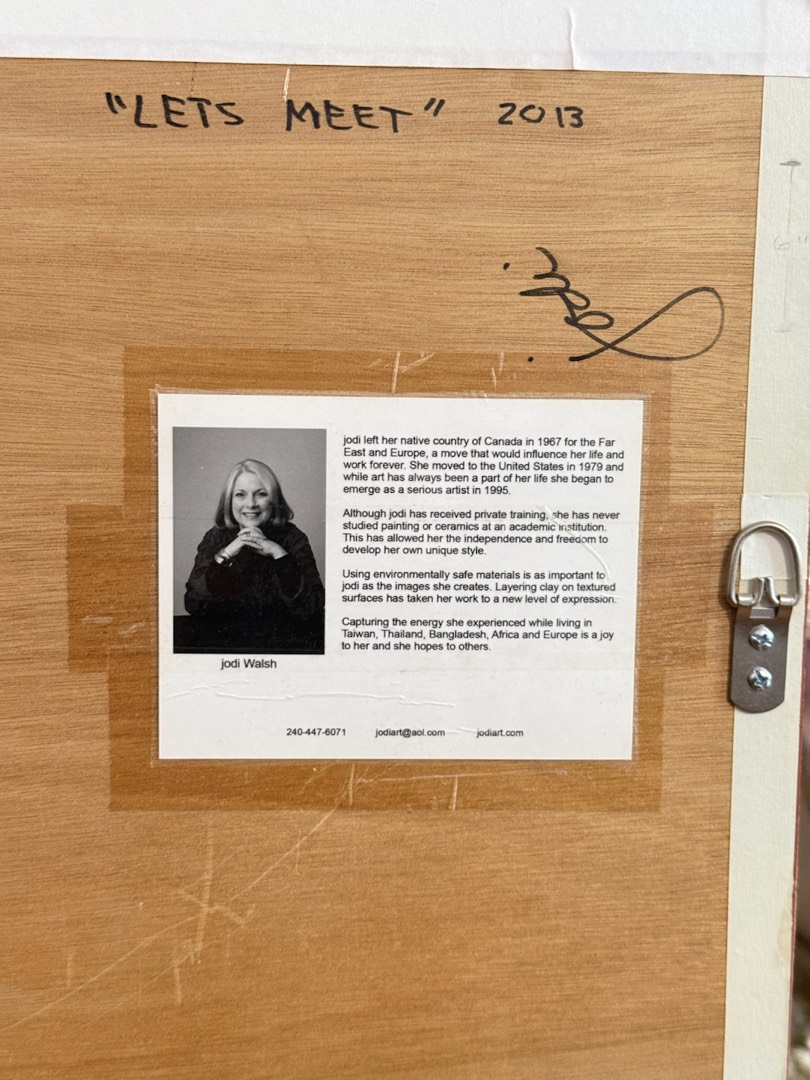 "LETS MEET" 2013
jodi left her native country of Canada in 1967 for the Far
East and Europe, a move that would influence her life and
work forever. She moved to the United States in 1979 and
while art has always been a part of her life she began to
emerge as a serious artist in 1995.
Although jodi has received private training, she has never
studied painting or ceramics at an academic institution.
This has allowed her the independence and freedom to
develop her own unique style.
Using environmentally safe materials is as important to
jodi as the images she creates. Layering clay on textured
surfaces has taken her work to a new level of expression.
Capturing the energy she experienced while living in
Taiwan, Thailand, Bangladesh, Africa and Europe is a joy
to her and she hopes to others.
jodi Walsh
240-447-6071 jodiart@aol.com jodiart.com
6"